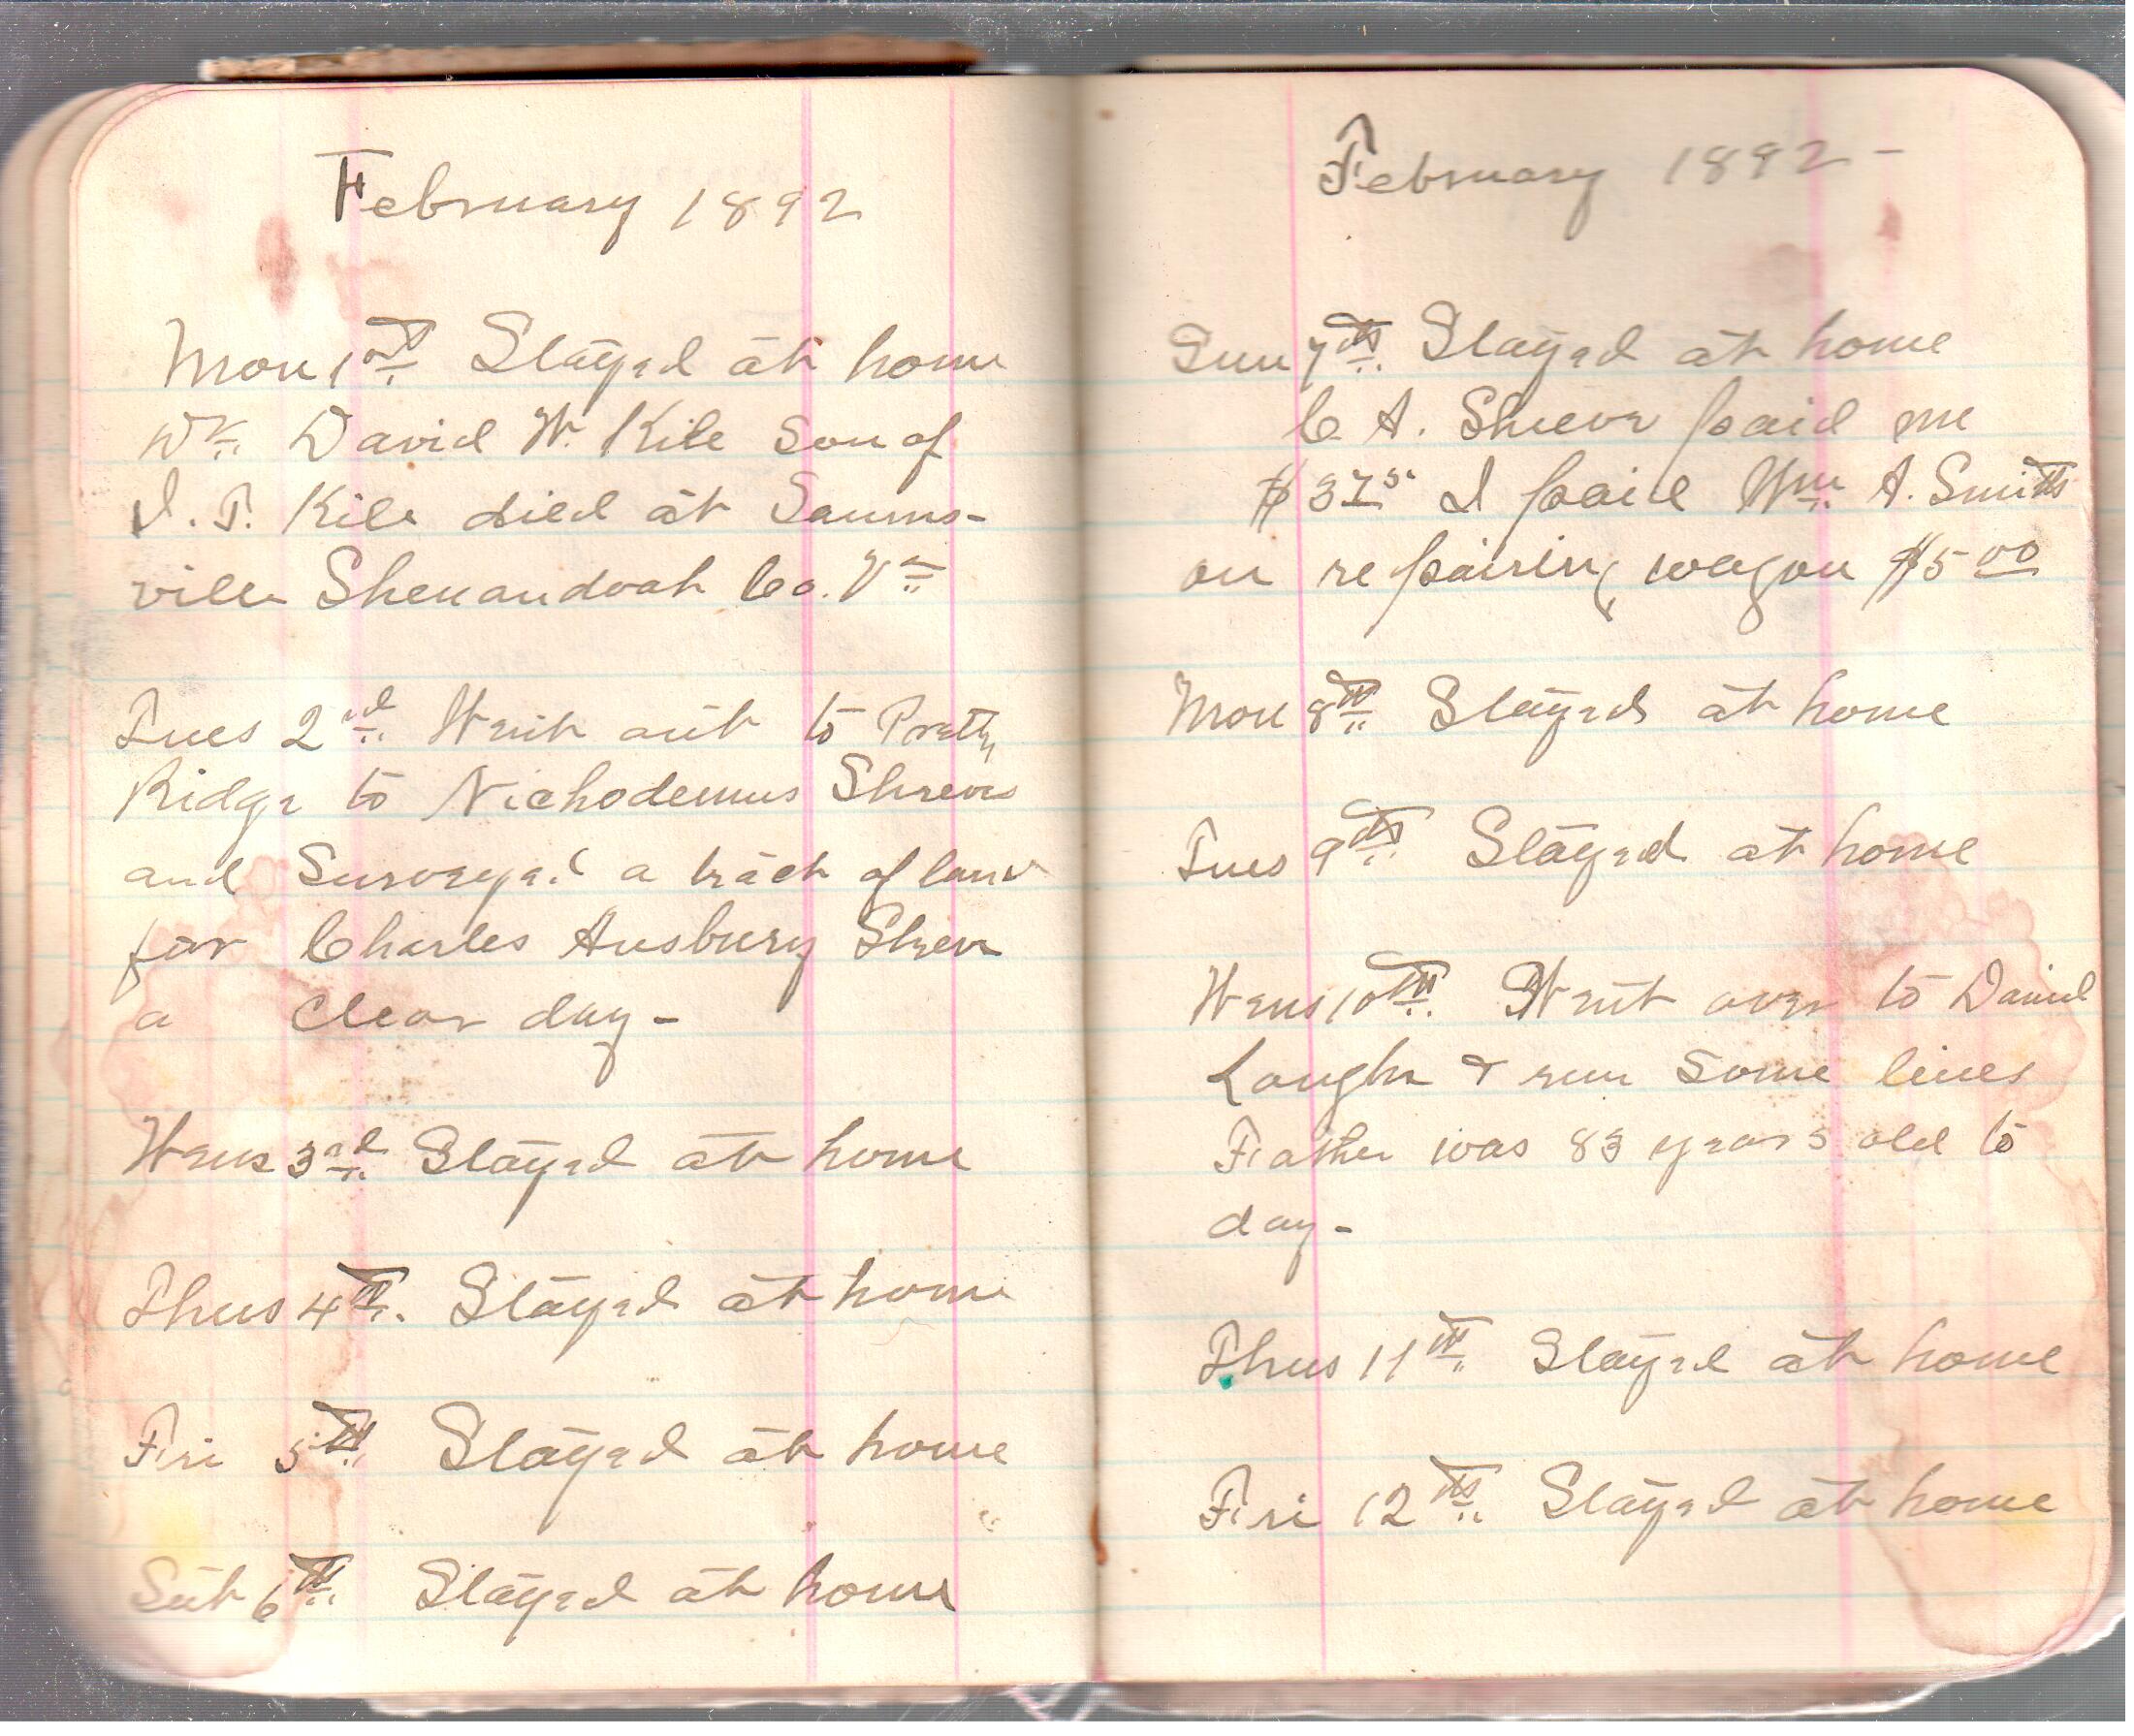 February 1892
Mon 1st Stayed at home
Dr. David W. Kile Son of
I. T. Kile died at Saums-
ville Shenandoah Co. Va
Tues 2nd Went out to Pretty
Ridge to Nichodemus Shreves
and Surveyed a tract of land
for Charles Ausbury Shreve
a clear day -
Wens 3rd Stayed at home
Thus 4th. Stayed at home
Fri 5th Stayed at home
Sat 6th Stayed at home
February 1892 -
Sun 7th. Stayed at home
C A. Shreve paid me
$ 375 I paid Wm A. Smith
on repairing wagon $5 00
Mon 8th Stayed at home
Tues 9th Stayed at home
Wens 10th. Went over to Daniel
& run some lines
Father was 83 years old to
day -
Thus 11th Stayed at home
Fri 12th Stayed at home